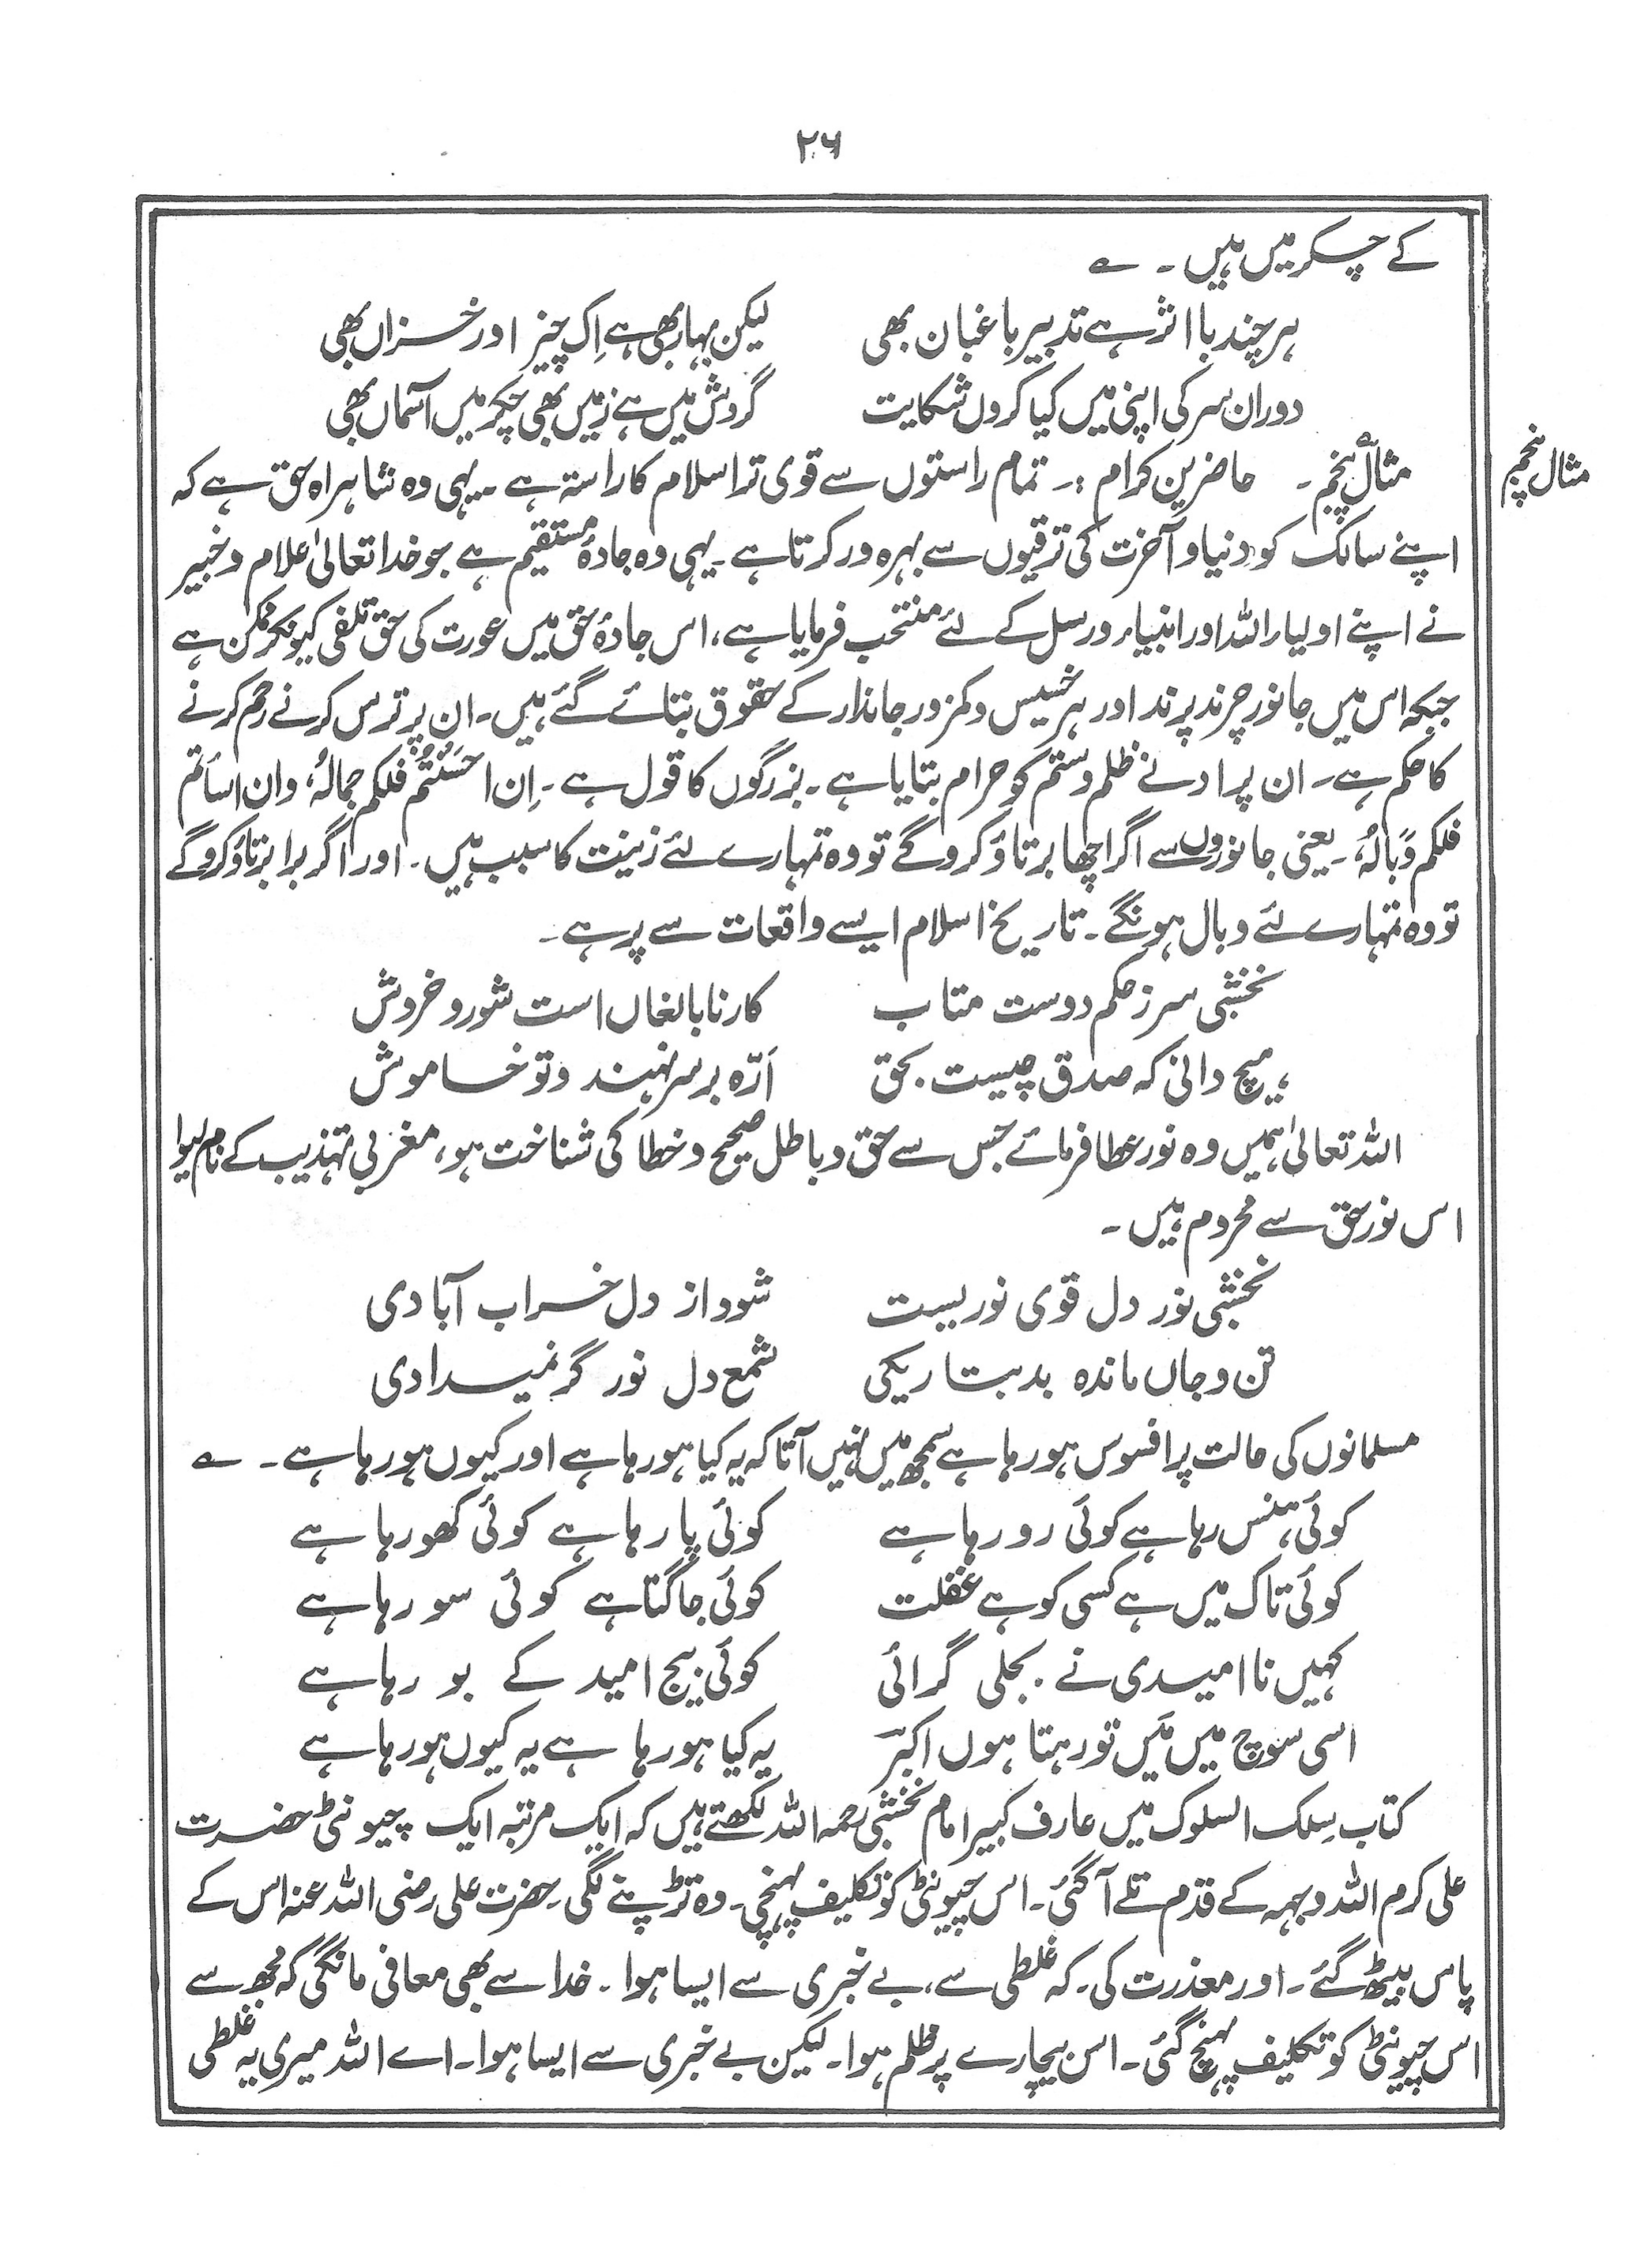 ۲۶
کے چکر میں ہیں۔ ؎
ہر چند با اثر ہے تدبیر باغبان بھی لیکن بہار بھی ہے اِک چیز اور خزاں بھی
دوران سر کی اپنی میں کیا کروں شکایت گردش میں ہے زمیں بھی چکر میں آسماں بھی
مثال پنجم
مثال پنجم۔ حاضرین کرام :۔ تمام راستوں سے قوی تر اسلام کا راستہ ہے۔ یہی وہ شاہراہ حق ہے کہ
اپنے سالک کو دنیا و آخرت کی ترقیوں سے بہرہ ور کرتا ہے۔ یہی وہ جادۂ مستقیم ہے جو خدا تعالیٰ علام و خبیر
نے اپنے اولیاء اللہ اور انبیاء و رسل کے لئے منتخب فرمایا ہے، اس جادۂ حق میں عورت کی حق تلفی کیونکر ممکن ہے
جبکہ اس میں جانور چرند پرند اور ہر خسیس و کمزور جاندار کے حقوق بتائے گئے ہیں۔ ان پر ترس کرنے رحم کرنے
کا حکم ہے۔ ان پر ادنےٰ ظلم و ستم کو حرام بتایا ہے۔ بزرگوں کا قول ہے۔ اِن احسَنْتُمْ فلکم جمالہُ، وان اسأتم
فلکم وَبالہُ۔ یعنی جانوروں سے اگر اچھا برتاؤ کروگے تو وہ تمہارے لئے زینت کا سبب ہیں۔ اور اگر برا برتاؤ کروگے
تو وہ تمہارے لئے وبال ہونگے۔ تاریخ اسلام ایسے واقعات سے پر ہے۔
نخشبی سر ز حکم دوست متاب کار نابالغاں است شور و خروش
ہیچ دانی کہ صدق چیست بحق اَرّہ بر سر نہند و تو خاموش
اللہ تعالیٰ ہمیں وہ نور عطا فرمائے جس سے حق و باطل صحیح و خطا کی شناخت ہو، مغربی تہذیب کے نام لیوا
اس نور حق سے محروم ہیں۔
نخشبی نور دل قوی نوریست شود از دل خراب آبادی
تن و جاں ماندہ بد بتاریکی شمع دل نور گر نمیدادی
مسلمانوں کی حالت پر افسوس ہو رہا ہے سمجھ میں نہیں آتا کہ یہ کیا ہو رہا ہے اور کیوں ہو رہا ہے۔ ؎
کوئی ہنس رہا ہے کوئی رو رہا ہے کوئی پا رہا ہے کوئی کھو رہا ہے
کوئی تاک میں ہے کسی کو ہے غفلت کوئی جاگتا ہے کوئی سو رہا ہے
کہیں نا امیدی نے بجلی گرائی کوئی بیج امید کے بو رہا ہے
اسی سوچ میں مَیں تو رہتا ہوں اکبرؔ یہ کیا ہو رہا ہے یہ کیوں ہو رہا ہے
کتاب سِلک السلوک میں عارف کبیر امام نخشبی رحمہ اللہ لکھتے ہیں کہ ایک مرتبہ ایک چیونٹی حضرت
علی کرم اللہ وجہہ کے قدم تلے آگئی۔ اس چیونٹی کو تکلیف پہنچی۔ وہ تڑپنے لگی۔ حضرت علی رضی اللہ عنہ اس کے
پاس بیٹھ گئے۔ اور معذرت کی۔ کہ غلطی سے، بے خبری سے ایسا ہوا۔ خدا سے بھی معافی مانگی کہ مجھ سے
اس چیونٹی کو تکلیف پہنچ گئی۔ اس بیچارے پر ظلم ہوا۔ لیکن بے خبری سے ایسا ہوا۔ اے اللہ میری یہ غلطی